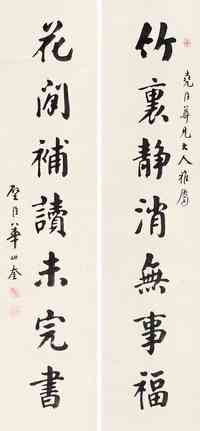 竹裏靜消無事福
堯臣尊兄大人雅屬
花閒補讀未完書
璧臣華世奎